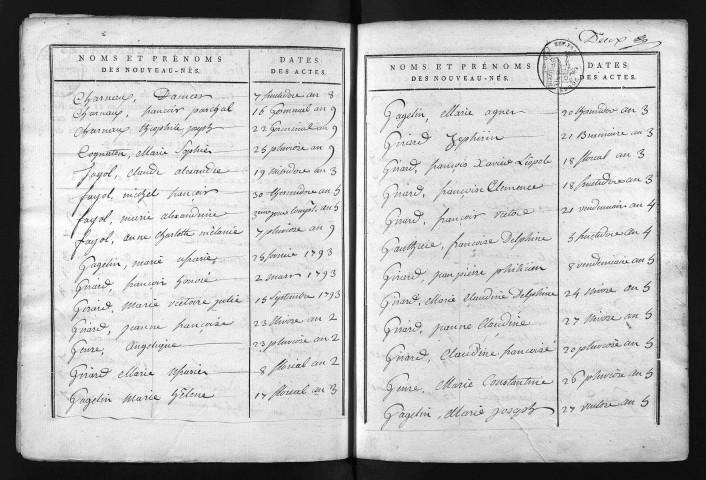 NOMS ET PRÉNOMS DES NOUVEAU-NÉS.
DATES DES ACTES.
Charnaux, 7 fructidore an 8
Charnaux, françois paschal 16 Germinal an 9
Charnaux théophile joseph 22 Germinal an 9
Cognaton, Marie Sophie 25 pluviore an 9
fayol, claude alexandre 19 mésidore an 3
fayol, michel françois 30 thermidore an 5
fayol, marie alexandrine 3 jour complet. an 5
fayol, anne charlotte mélanie 7 pluviore an 9
Gagelin, marie 25 janvier 1793
Girard, françois honoré 2 mars 1793
Girard, Marie victoire julie 15 Septembre 1793
Girard, jeanne françoise 23 Nivore an 2
Genre, Angélique 23 pluviore an 2
Girard Marie 8 floréal an 2
Gagelin Marie hélène 17 floréal an 3
Deux
NOMS ET PRÉNOMS DES NOUVEAU-NÉS.
DATES DES ACTES.
Gagelin, Marie agnes 20 thermidor an 3
Girard Zephirin 21 Brumaire an 3
Girard, françois Xavier Léopole 18 floréal an 3
Girard, françoise Clemence 18 fructidore an 3
Girard, françois victore 21 vendemiair an 4
françoise Delphine 5 fructidore an 4
Girard, 8 vendemiaire an 5
Girard, Marie Claudine Delphine 24 Nivore an 5
Girard, jeanne Claudine 27 Nivore an 5
Girard, Claudine françoise 20 pluviore an 5
Genre, Marie Constantine 26 pluviore an 5
Gagelin, Marie joseph 27 ventore an 5